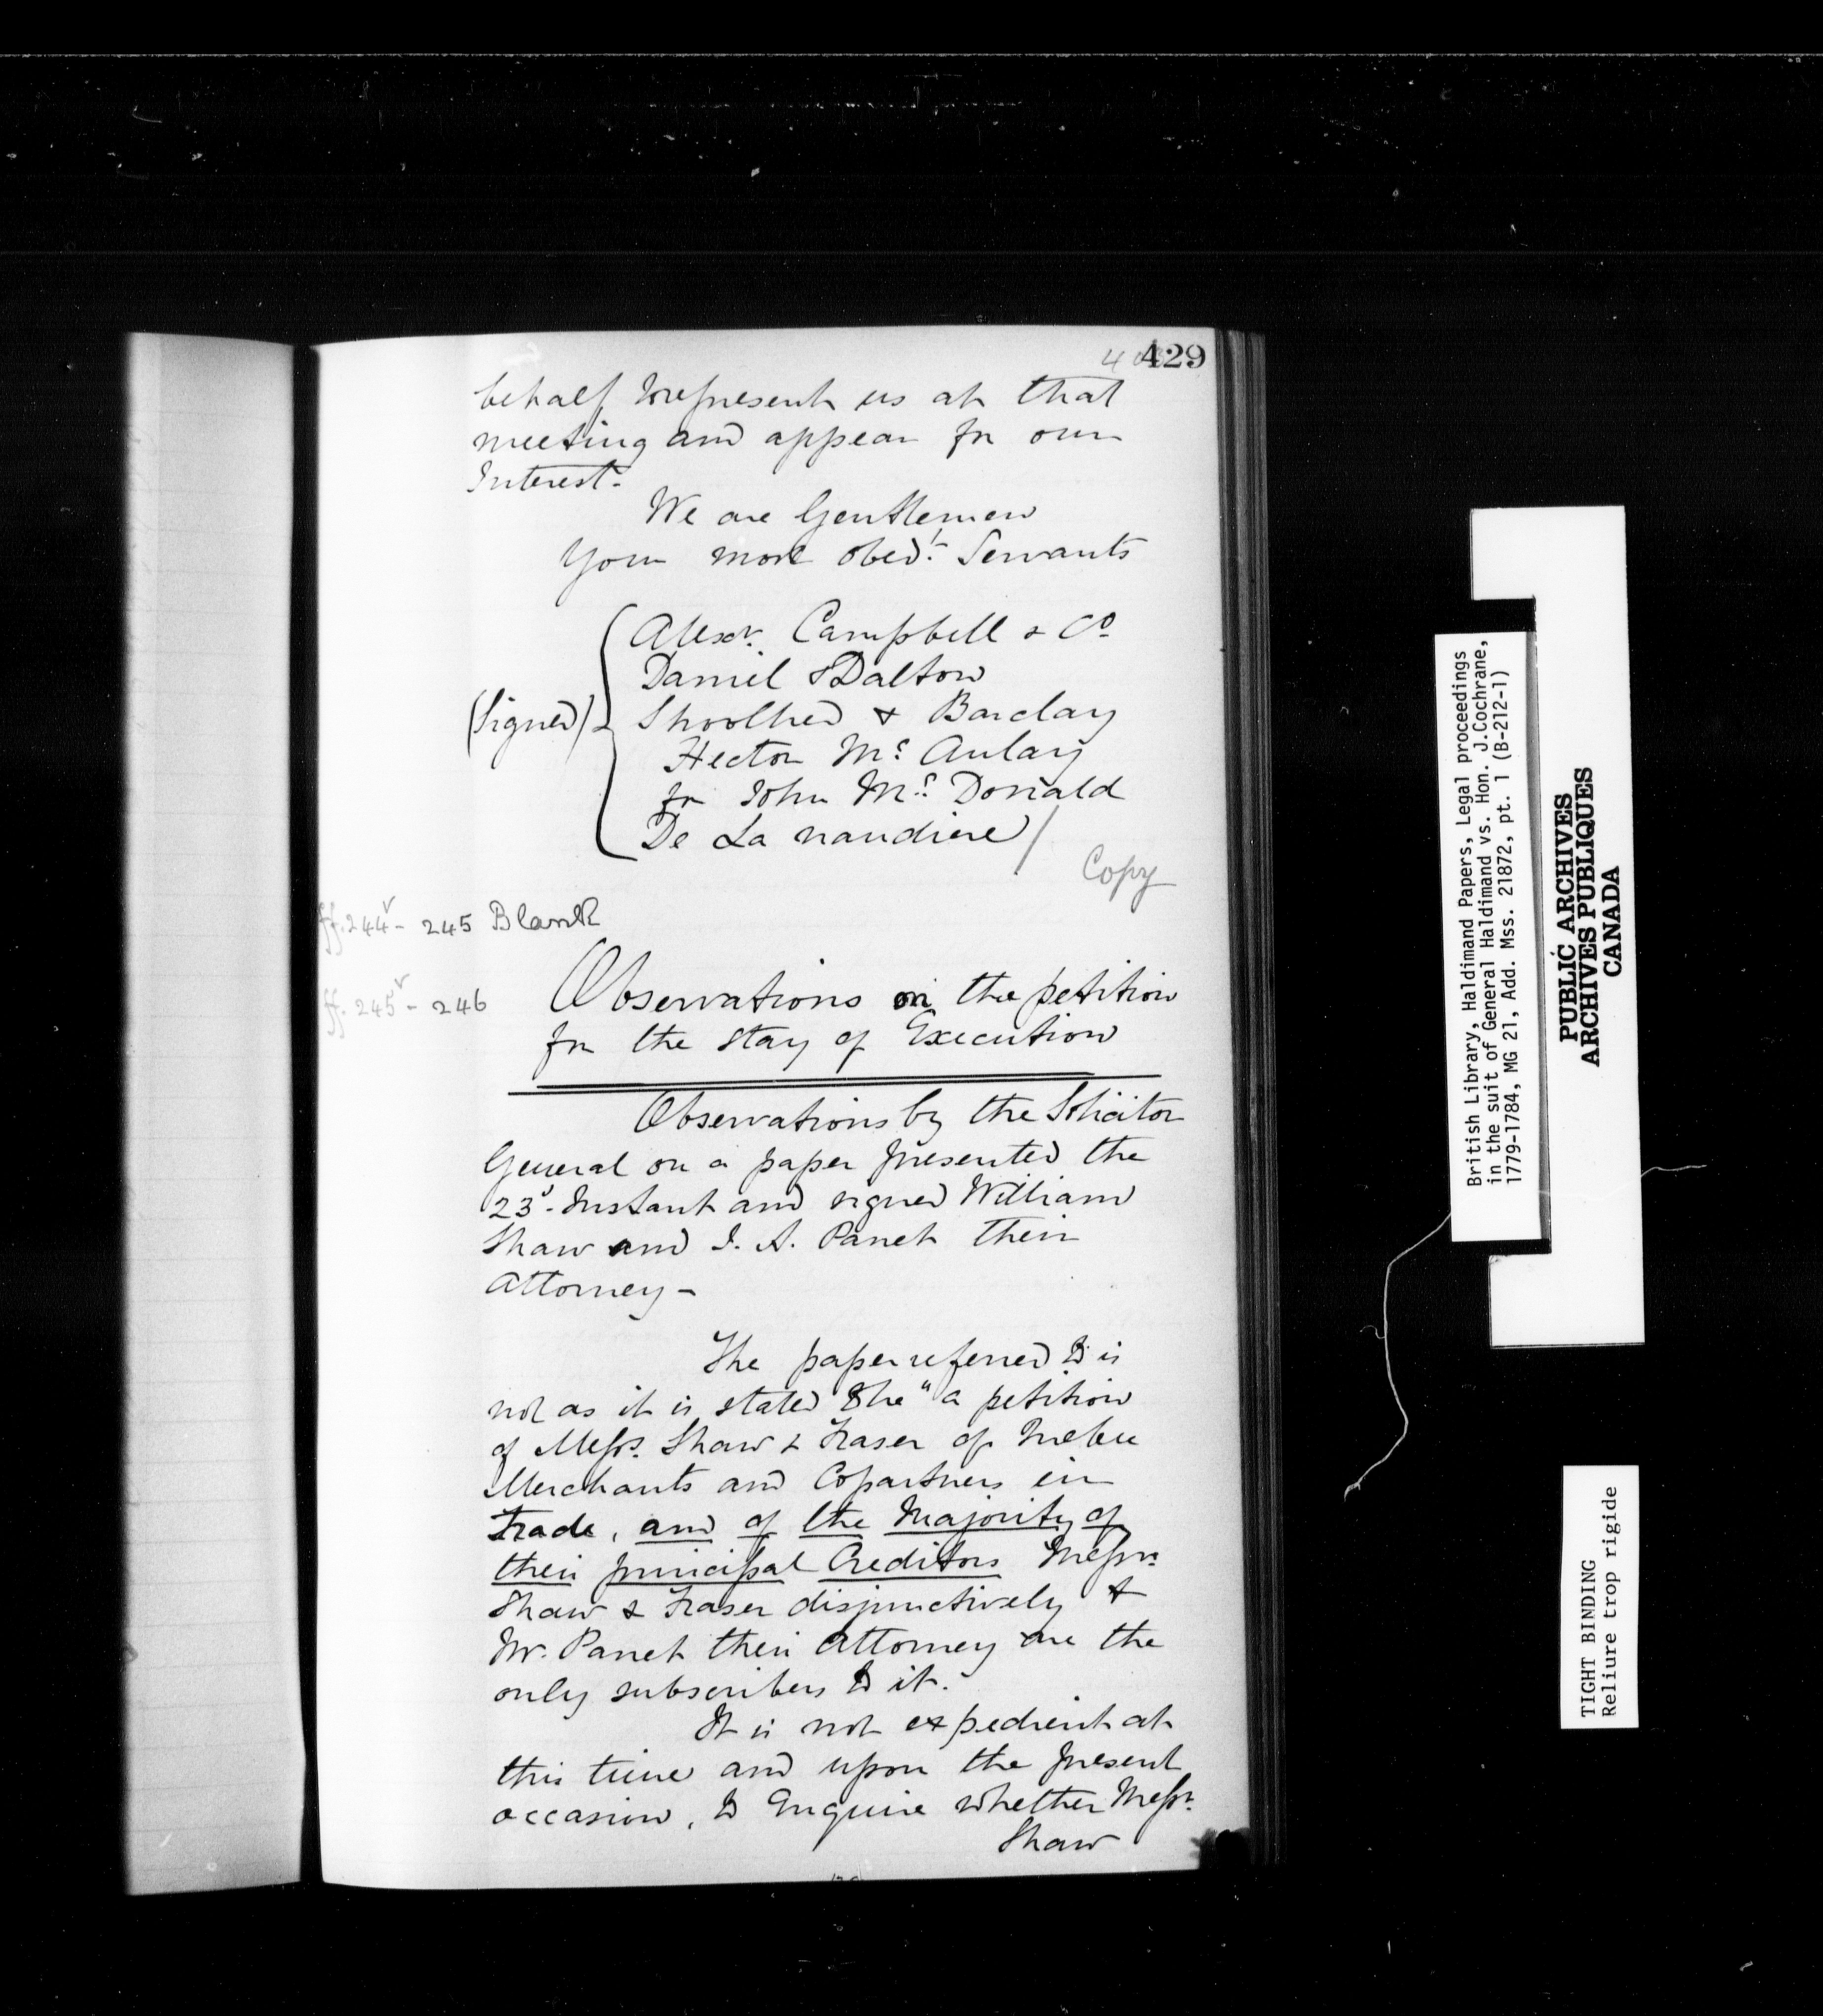 429
behalf to represent us at that
meeting and appear for our
Interest.
We are Gentlemen
Your most obedt. Servants
(Signed)
Alexr. Campbell & Co
Daniel & Dalton
Shoolbred & Barclay
Hector Mc. Aulay
for John Mc. Donald
De La naudiere
Copy
ff. 244v - 245 Blank
ff. 245v - 246
Observations on the petition
for the stay of Execution
Observations by the Solicitor
General on a paper presented the
23d. Instant and signed William
Shaw and J. A. Panet their
Attorney -
The paper referred to is
not as it is stated to be "a petition
of Messrs. Shaw & Fraser of Quebec
Merchants and Copartners in
Trade, and of the Majority of
their principal Creditors Messrs.
Shaw & Fraser disjunctively &
Mr. Panet their Attorney are the
only subscribers to it.
It is not expedient at
this time and upon the present
occasion, to Enquire whether Messrs.
Shaw
British Library, Haldimand Papers, Legal proceedings
in the suit of General Haldimand vs. Hon. J.Cochrane,
1779-1784, MG 21, Add. Mss. 21872, pt. 1 (B-212-1)
PUBLIC ARCHIVES
ARCHIVES PUBLIQUES
CANADA
TIGHT BINDING
Reliure trop rigide